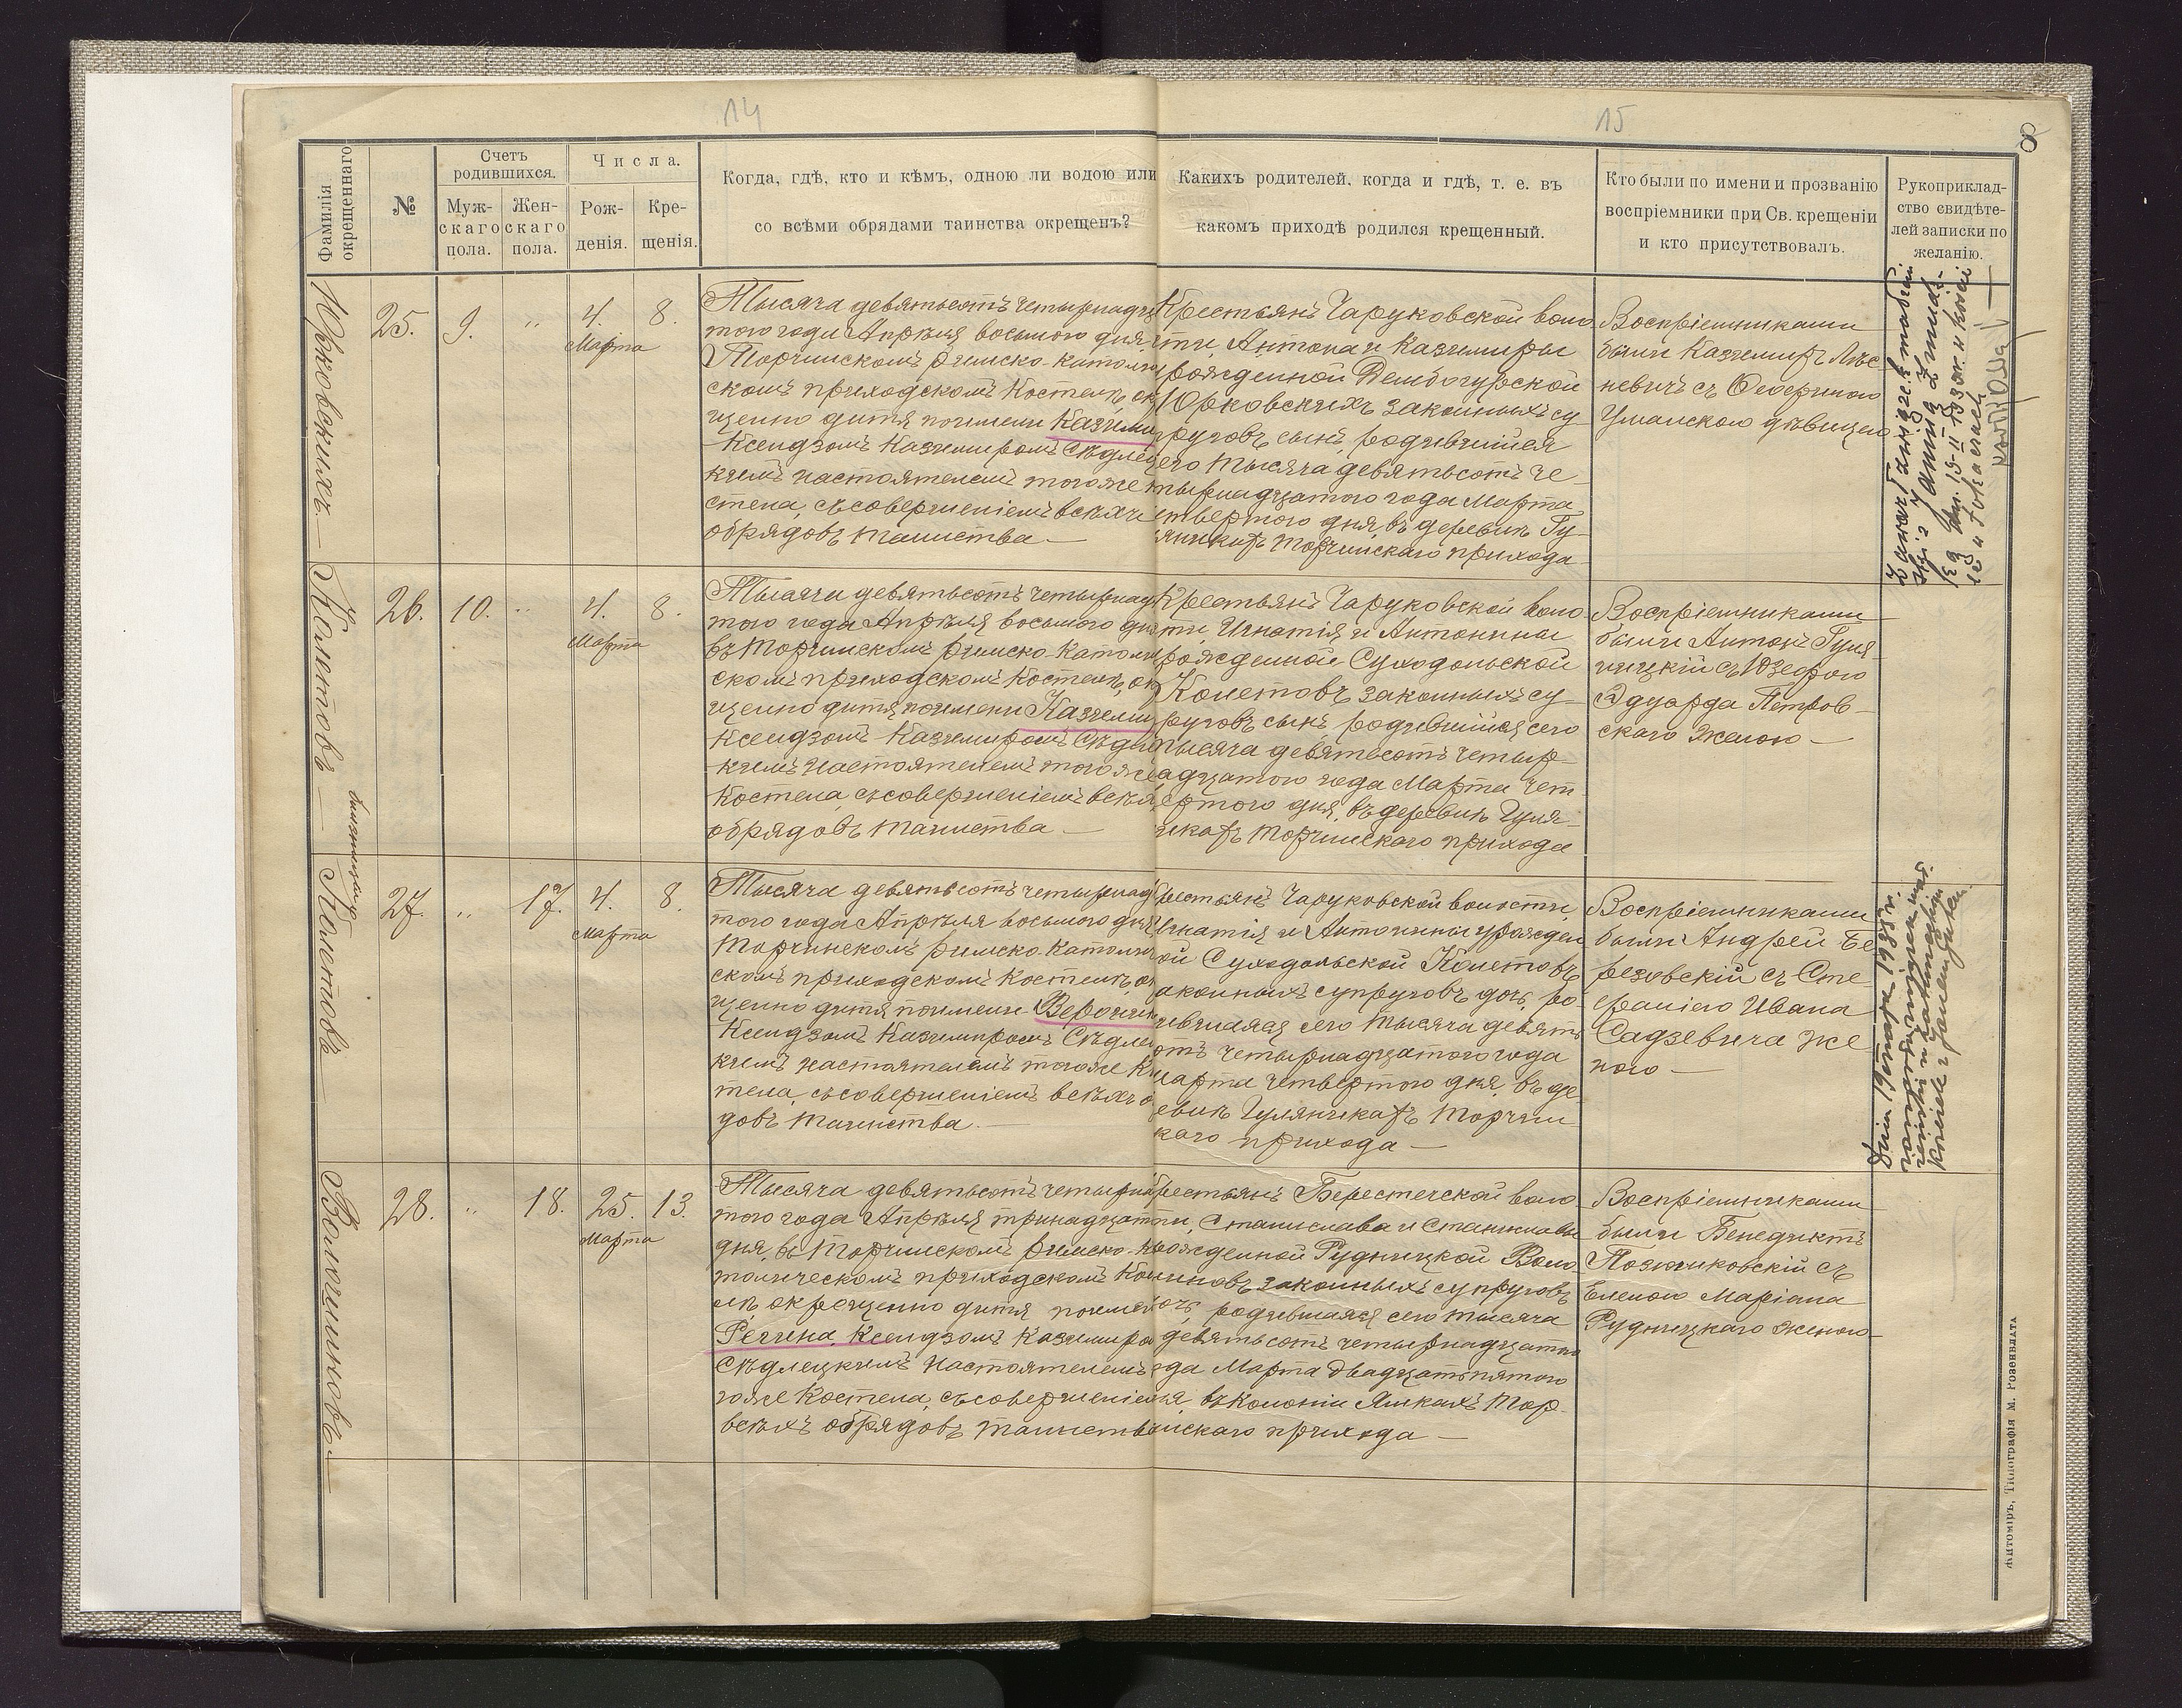 14
15
8
Фамилія окрещеннаго
№
Счетъ родившихся.
Мужскаго пола.
Женскаго пола.
Числа.
Рожденія.
Крещенія.
Когда, гдѣ, кто и кѣмъ, одною ли водою или
со всѣми обрядами таинства окрещенъ?
Какихъ родителей, когда и гдѣ, т. е. въ
какомъ приходѣ родился крещенный.
Кто были по имени и прозванію
воспріемники при Св. крещеніи
и кто присутствовалъ.
Рукоприклад-
ство свидѣте-
лей записки по
желанію.
Юрковскихъ
25.
9.
"
4.
Марта
8.
Тысяча девятьсотъ четырнадц
того года Апрѣля восьмого дня,
Торчинскомъ римско-католич
скомъ приходскомъ Костелѣ, ок
щенно дитя по имени Казими
Ксендзомъ Казимиромъ Сѣдлец
кимъ настоятелемъ того же
стела, съ совершеніемъ всѣхъ
обрядовъ таинства —
Крестьянъ Чаруковской воло
сти, Антона и Казимиры
рожденной Дембогурской
Юрковскихъ законныхъ су
пруговъ сынъ, родившійся
сего тысяча девятьсотъ че-
тырнадцатого года Марта
четвертого дня, въ деревнѣ Гу-
Торчинскаго прихода
Воспріемниками
были Казимиръ Лис
невичъ съ Северином
Уманскою дѣвицею
Колетовъ —
26.
10.
"
4.
Марта
8.
Тысяча девятьсотъ четырнад
того года Апрѣля восьмого дня
въ Торчинскомъ римско-Католи
скомъ приходскомъ Костелѣ, ок
щенно дитя по имени Казими
Ксендзомъ Казимиромъ Сѣдл
кимъ настоятелемъ того же
Костела, съ совершеніемъ всѣх
обрядовъ таинства —
Крестьянъ Чаруковской воло
сти, Игнатія и Антонины
рожденной Суходольской
Колетовъ законныхъ су
пруговъ сынъ, родившійся сего
тысяча девятьсотъ четыр
надцатого года Марта чет
вертого дня, въ деревнѣ Гуля
никахъ Торчинскаго прихода
Воспріемниками
были Антонъ Гуля
ницкій съ Юзефою
Эдуарда Петров
скаго женою —
близнецы
Колетовъ
27.
"
17.
4.
Марта
8.
Тысяча девятьсотъ четырнад
того года Апрѣля восьмого дня,
Торчинскомъ римско-Католич
скомъ приходскомъ Костелѣ, ок
щенно дитя по имени Вероник
Ксендзомъ Казимиромъ Сѣдле
кимъ настоятелемъ того же К
тела, съ совершеніемъ всѣхъ о
довъ таинства —
рестьянъ Чаруковской волости,
Игнатія и Антонины урожден
ой Суходольской Колетовъ
аконныхъ супруговъ дочь, ро
дившаяся сего тысяча девять
отъ четырнадцатого года
марта четвертого дня, въ де
евнѣ Гуляникахъ Торчин
каго прихода —
Воспріемниками
были Андрей Бе
резовскій съ Сте
фаніею Ивана
Садзевича же
ною —
Волошиновъ
28.
"
18.
25.
Марта
13.
Тысяча девятьсотъ четырна
того года Апрѣля тринадцат
дня, въ Торчинскомъ римско-К
толическомъ приходскомъ Ко
лѣ окрещенно дитя по имени
Регина, Ксендзомъ Казимиро
Сѣдлецкимъ настоятелемъ
гоже Костела, съ совершеніем
всѣхъ обрядовъ таинств
рестьянъ Берестечской воло
ти, Станислава и Станиславы
рожденной Рудницкой Воло
шиновъ законныхъ супруговъ
очь, родившаяся сего тысяча
девятьсотъ четырнадцатаго
ода Марта двадцать пятого
ня, въ Колоніи Ямкахъ Тор
чинскаго прихода —
Воспріемниками
были Бенедиктъ
съ
Еленою Маріана
Рудницкаго женою —
Житоміръ, Типографія М. Розенблата